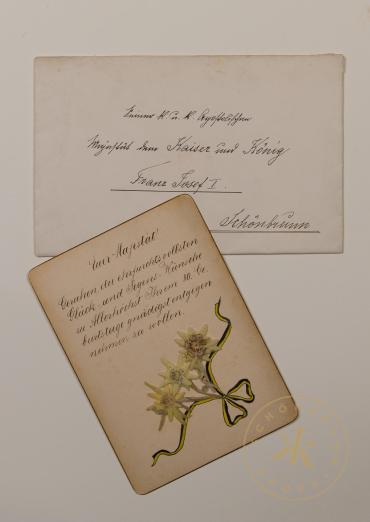 Seiner K. u. K. Apostolischen
Majestät dem Kaiser und König
Franz Josef I.
Schönbrunn
Euer Majestät!
Geruhen die ehrfurchtsvollsten
Glück- und Segens-Wünsche
zu Allerhöchst Ihrem 80. Ge-
burtstage gnädigst entgegen
nehmen zu wollen.